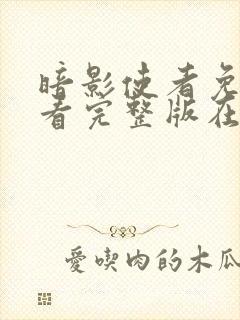 暗影使者免
看完整版在
愛喫肉的木瓜